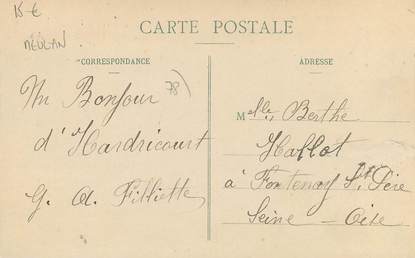 15 €
MEULAN
CARTE POSTALE
CORRESPONDANCE
ADRESSE
Un Bonjour
78)
d'Hardricourt
G. A. Filliette
Melle Berthe
Hallot
à Fontenay St Père
Seine - Oise